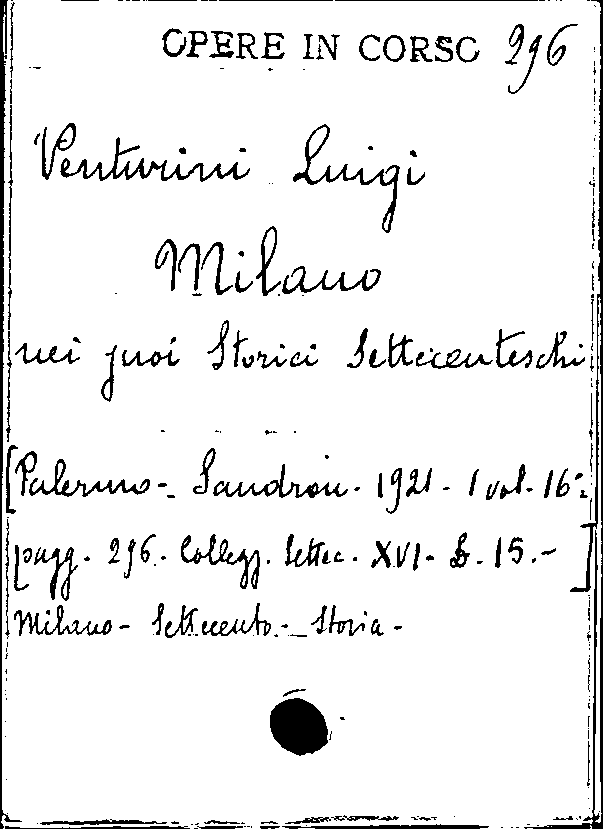 OPERE IN CORSO 296
Venturini Luigi
Milano
nei suoi Storici Settecenteschi
[Palermo - Sandron. 1921. 1 vol. 16°.
pagg. 296. Collez. Settec. XVI. L. 15.-]
Milano - Settecento - Storia -